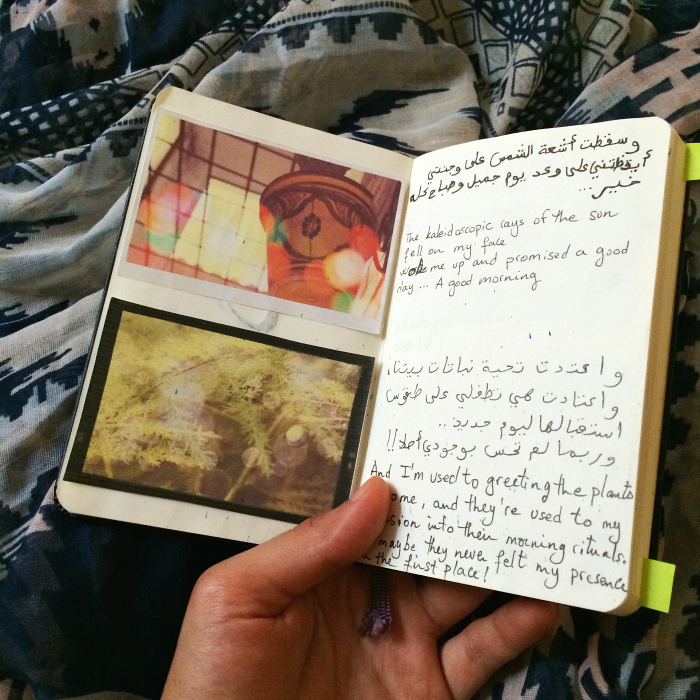 وسقطت أشعة الشمس على وجنتي
أيقظتني على وعد يوم جميل وصباح كله
خير...
The kaleidoscopic rays of the sun
fell on my face
woke me up and promised a good
day... A good morning
واعتدت تحية نباتات بيتنا،
واعتادت هي تطفلي على طقوس
استقبالها ليوم جديد..
وربما لم تحس بوجودي أصلا!!
And I'm used to greeting the plants
, and they're used to my
into their morning rituals.
maybe they never felt my presence
the first place!